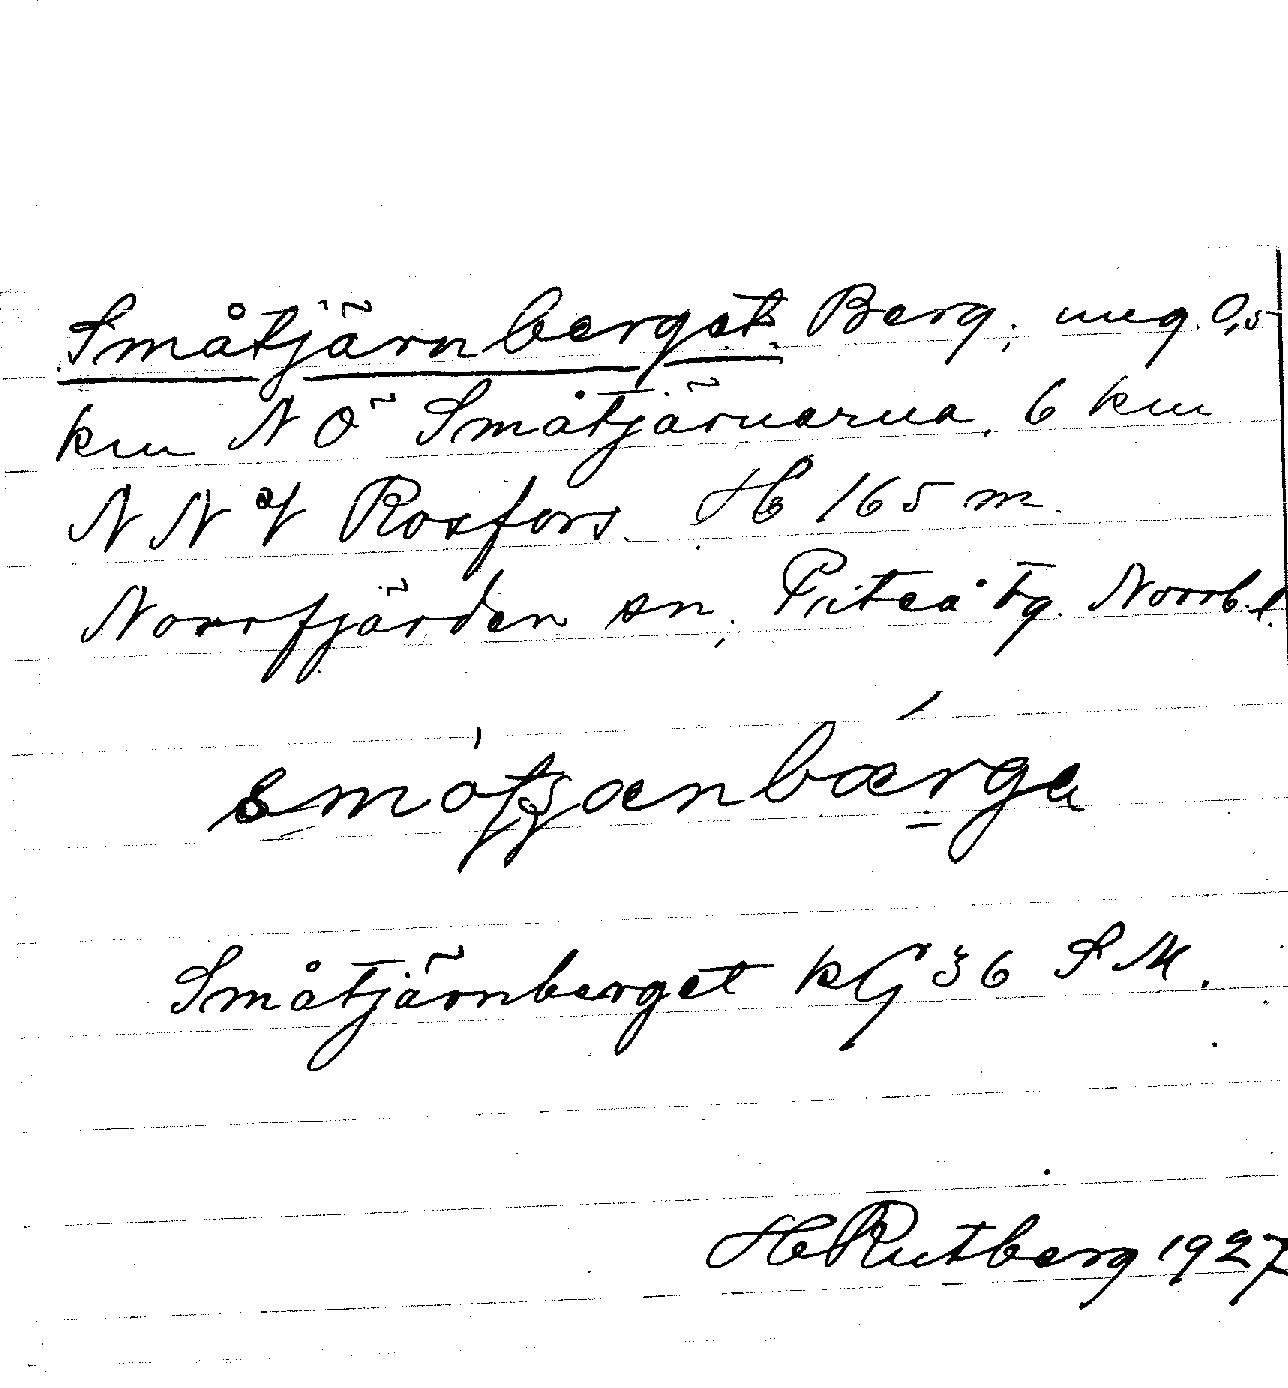 Småtjärnberget. Berg, ung. 0,5
km NÖ Småtjärnarna, 6 km
NN of Rosfors. H 165 m.
Norrfjärden sn, Piteå tg. Norrb. l.
Småtjärnberget kG 36 S M.
H Rutberg 1927